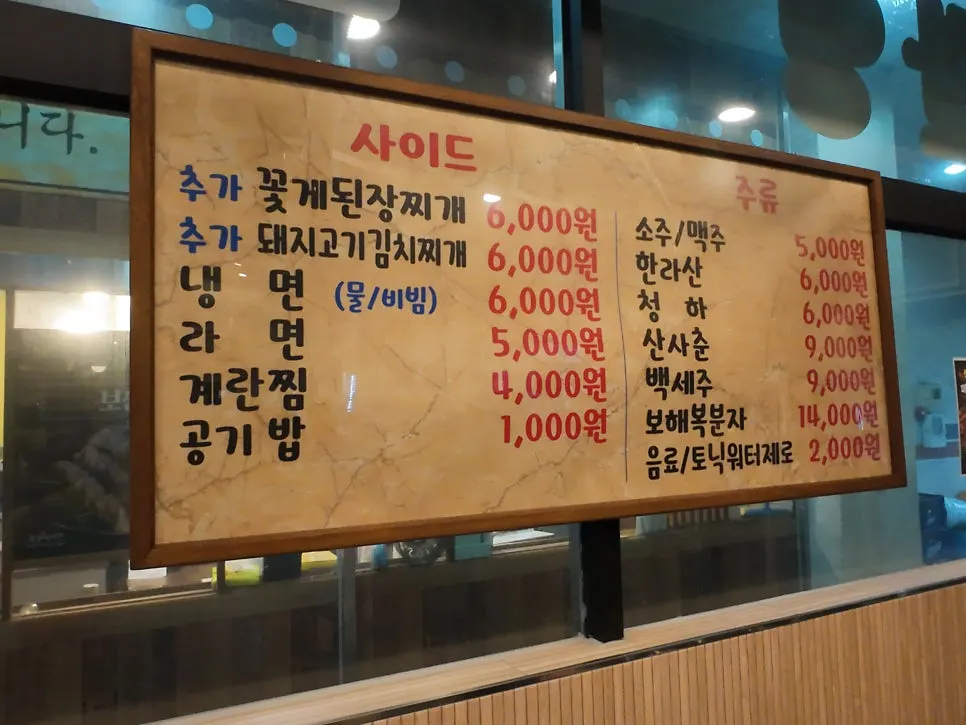 니다.
사이드
추가 꽃게된장찌개 6,000원
추가 돼지고기김치찌개 6,000원
냉 면 (물/비빔) 6,000원
라 면 5,000원
계란찜 4,000원
공기밥 1,000원
주류
소주/맥주 5,000원
한라산 6,000원
청 하 6,000원
산사춘 9,000원
백세주 9,000원
보해복분자 14,000원
음료/토닉워터제로 2,000원